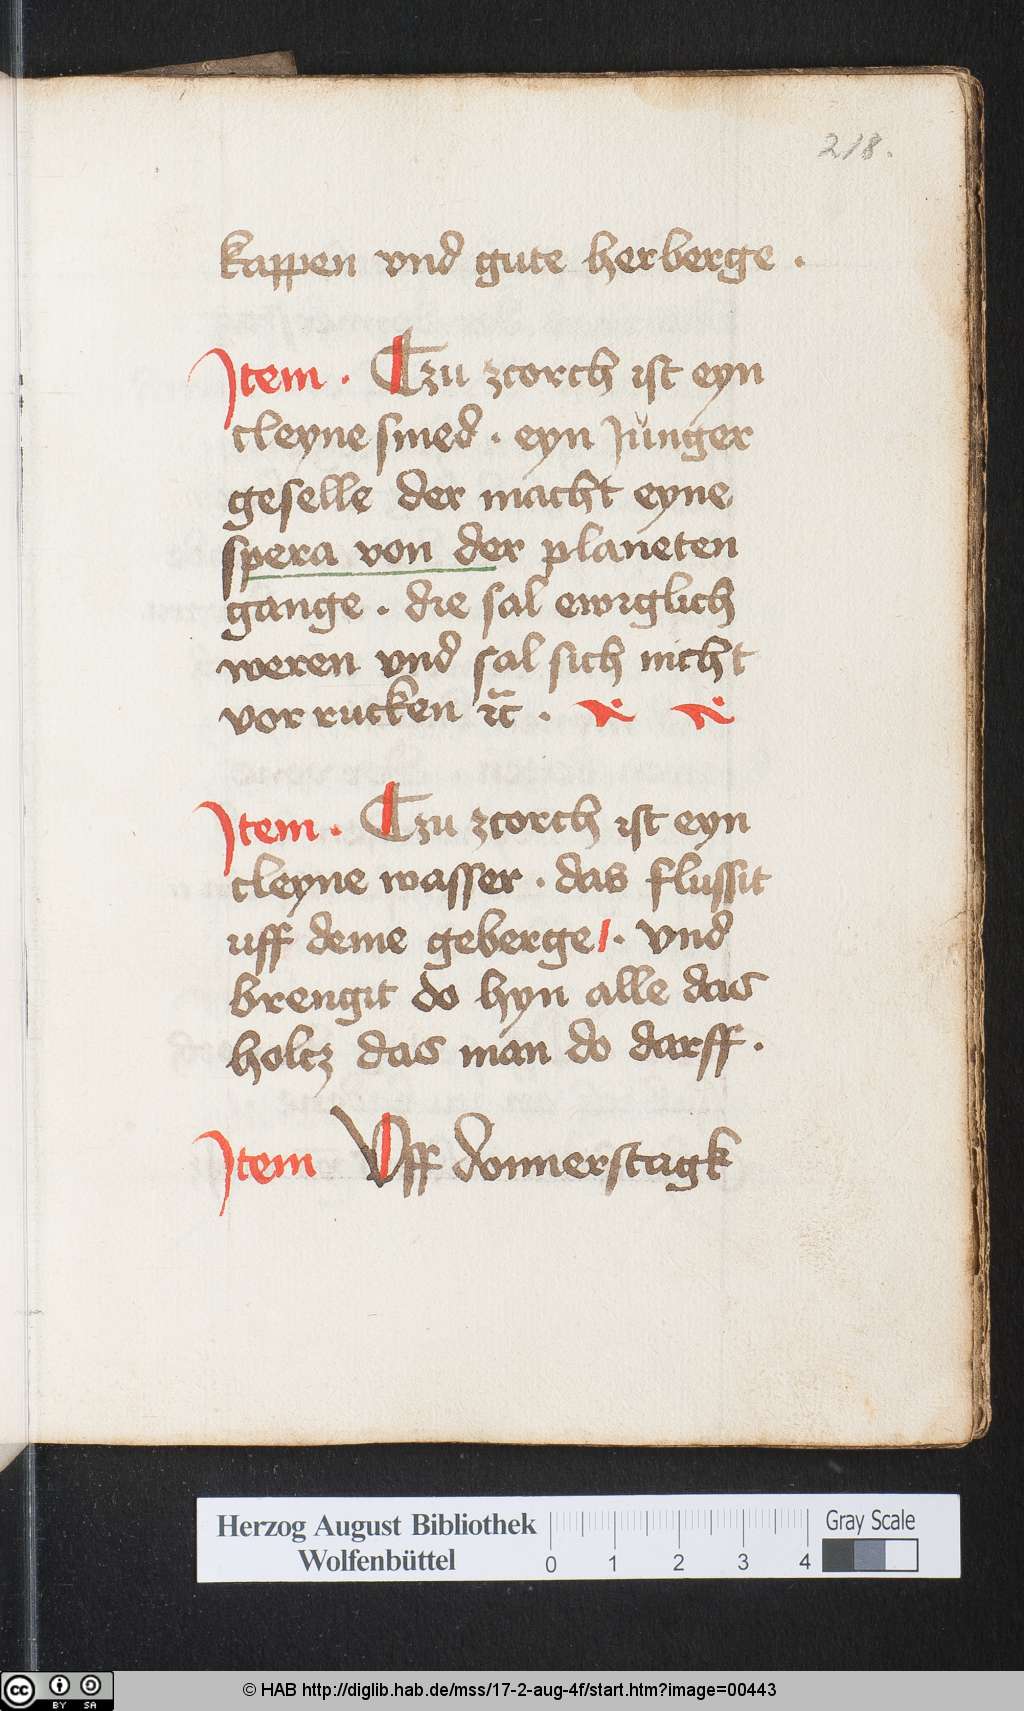 218.
kappen vnd gute herberge .
Item . Czu zcorch ist eyn
cleyne smed . eyn Jŭnger
geselle der macht eyne
spera von der planeten
gange . die sal ewiglich
weren vnd sal sich nicht
vor rucken ꝛc̃ .
Item . Czu zcorch ist eyn
cleyne wasser . das flussit
uff deme geberge . vnd
brengit do hyn alle das
holcz das man do darff .
Item Vff donnerstagk
Herzog August Bibliothek
Wolfenbüttel
0 1 2 3 4
Gray Scale
cc BY SA
© HAB http://diglib.hab.de/mss/17-2-aug-4f/start.htm?image=00443